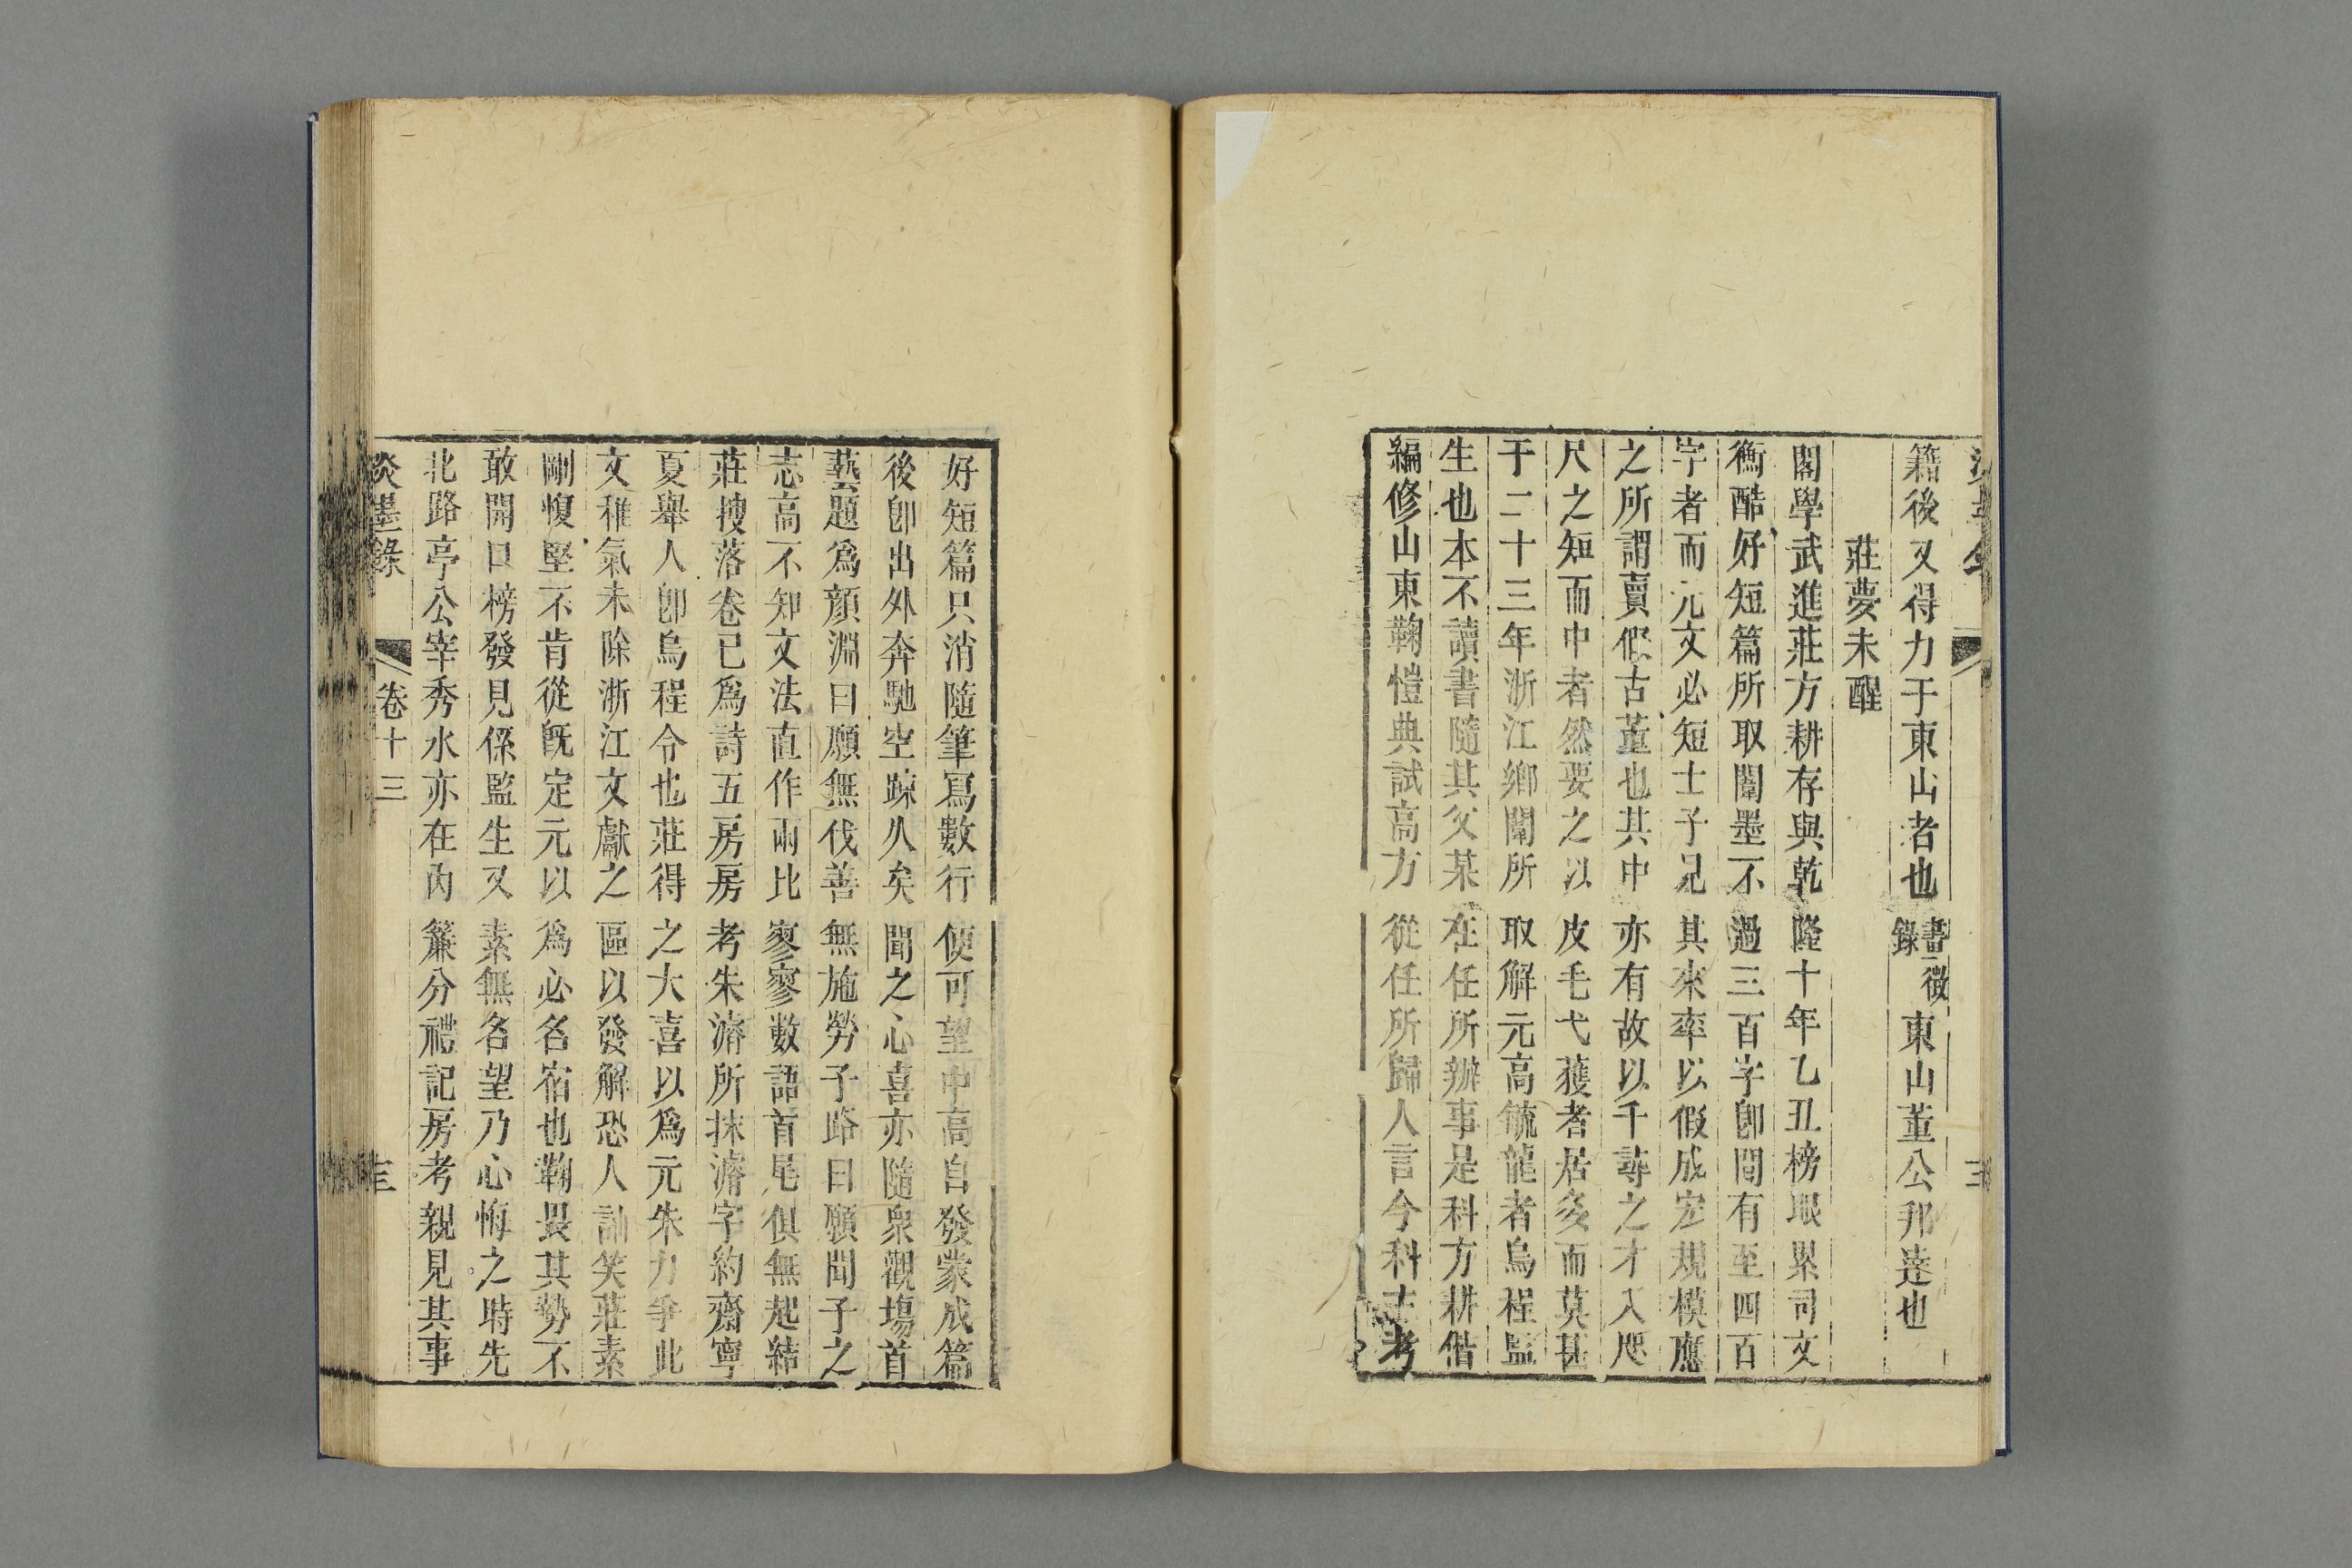 籍後又得力于東山者也書徵錄東山董公邦逹也
莊夢未醒
閣學武進莊方耕存與乾隆十年乙丑榜眼累司文
衡酷好短篇所取闈墨不過三百字卽間有至四百
字者而元文必短士子見其來率以假成宏規模應
之所謂賣假古董也其中亦有故以千尋之才入咫
尺之短而中者然要之以皮毛弋獲者居多而莫甚
于二十三年浙江鄉闈所取解元高毓龍者烏程監
生也本不讀書隨其父某在任所辦事是科方耕偕
編修山東鞠愷典試高方從任所歸人言今科主考
好短篇只消隨筆寫數行便可望中高自發蒙成篇
後卽出外奔馳空疎久矣聞之心喜亦隨衆觀塲首
藝題爲顔淵曰願無伐善無施勞子路曰願聞子之
志高不知文法直作兩比寥寥數語首尾俱無起結
莊搜落卷已爲詩五房房考朱濬所抹濬字約齋寧
夏舉人卽烏程令也莊得之大喜以爲元朱力爭此
文稚氣未除浙江文獻之區以發解恐人訕笑莊素
剛愎堅不肯從旣定元以爲必名宿也鞠畏其勢不
敢開口榜發見係監生又素無名望乃心悔之時先
北路亭公宰秀水亦在內簾分禮記房考親見其事
淡墨錄
卷十三